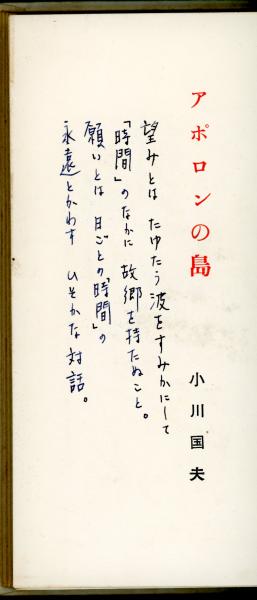 アポロンの島
小川国夫
望みとは たゆたう波をすみかにして
「時間」のなかに 故郷を持たぬこと。
願いとは 日ごとの「時間」の
永遠とかわす ひそかな対話。